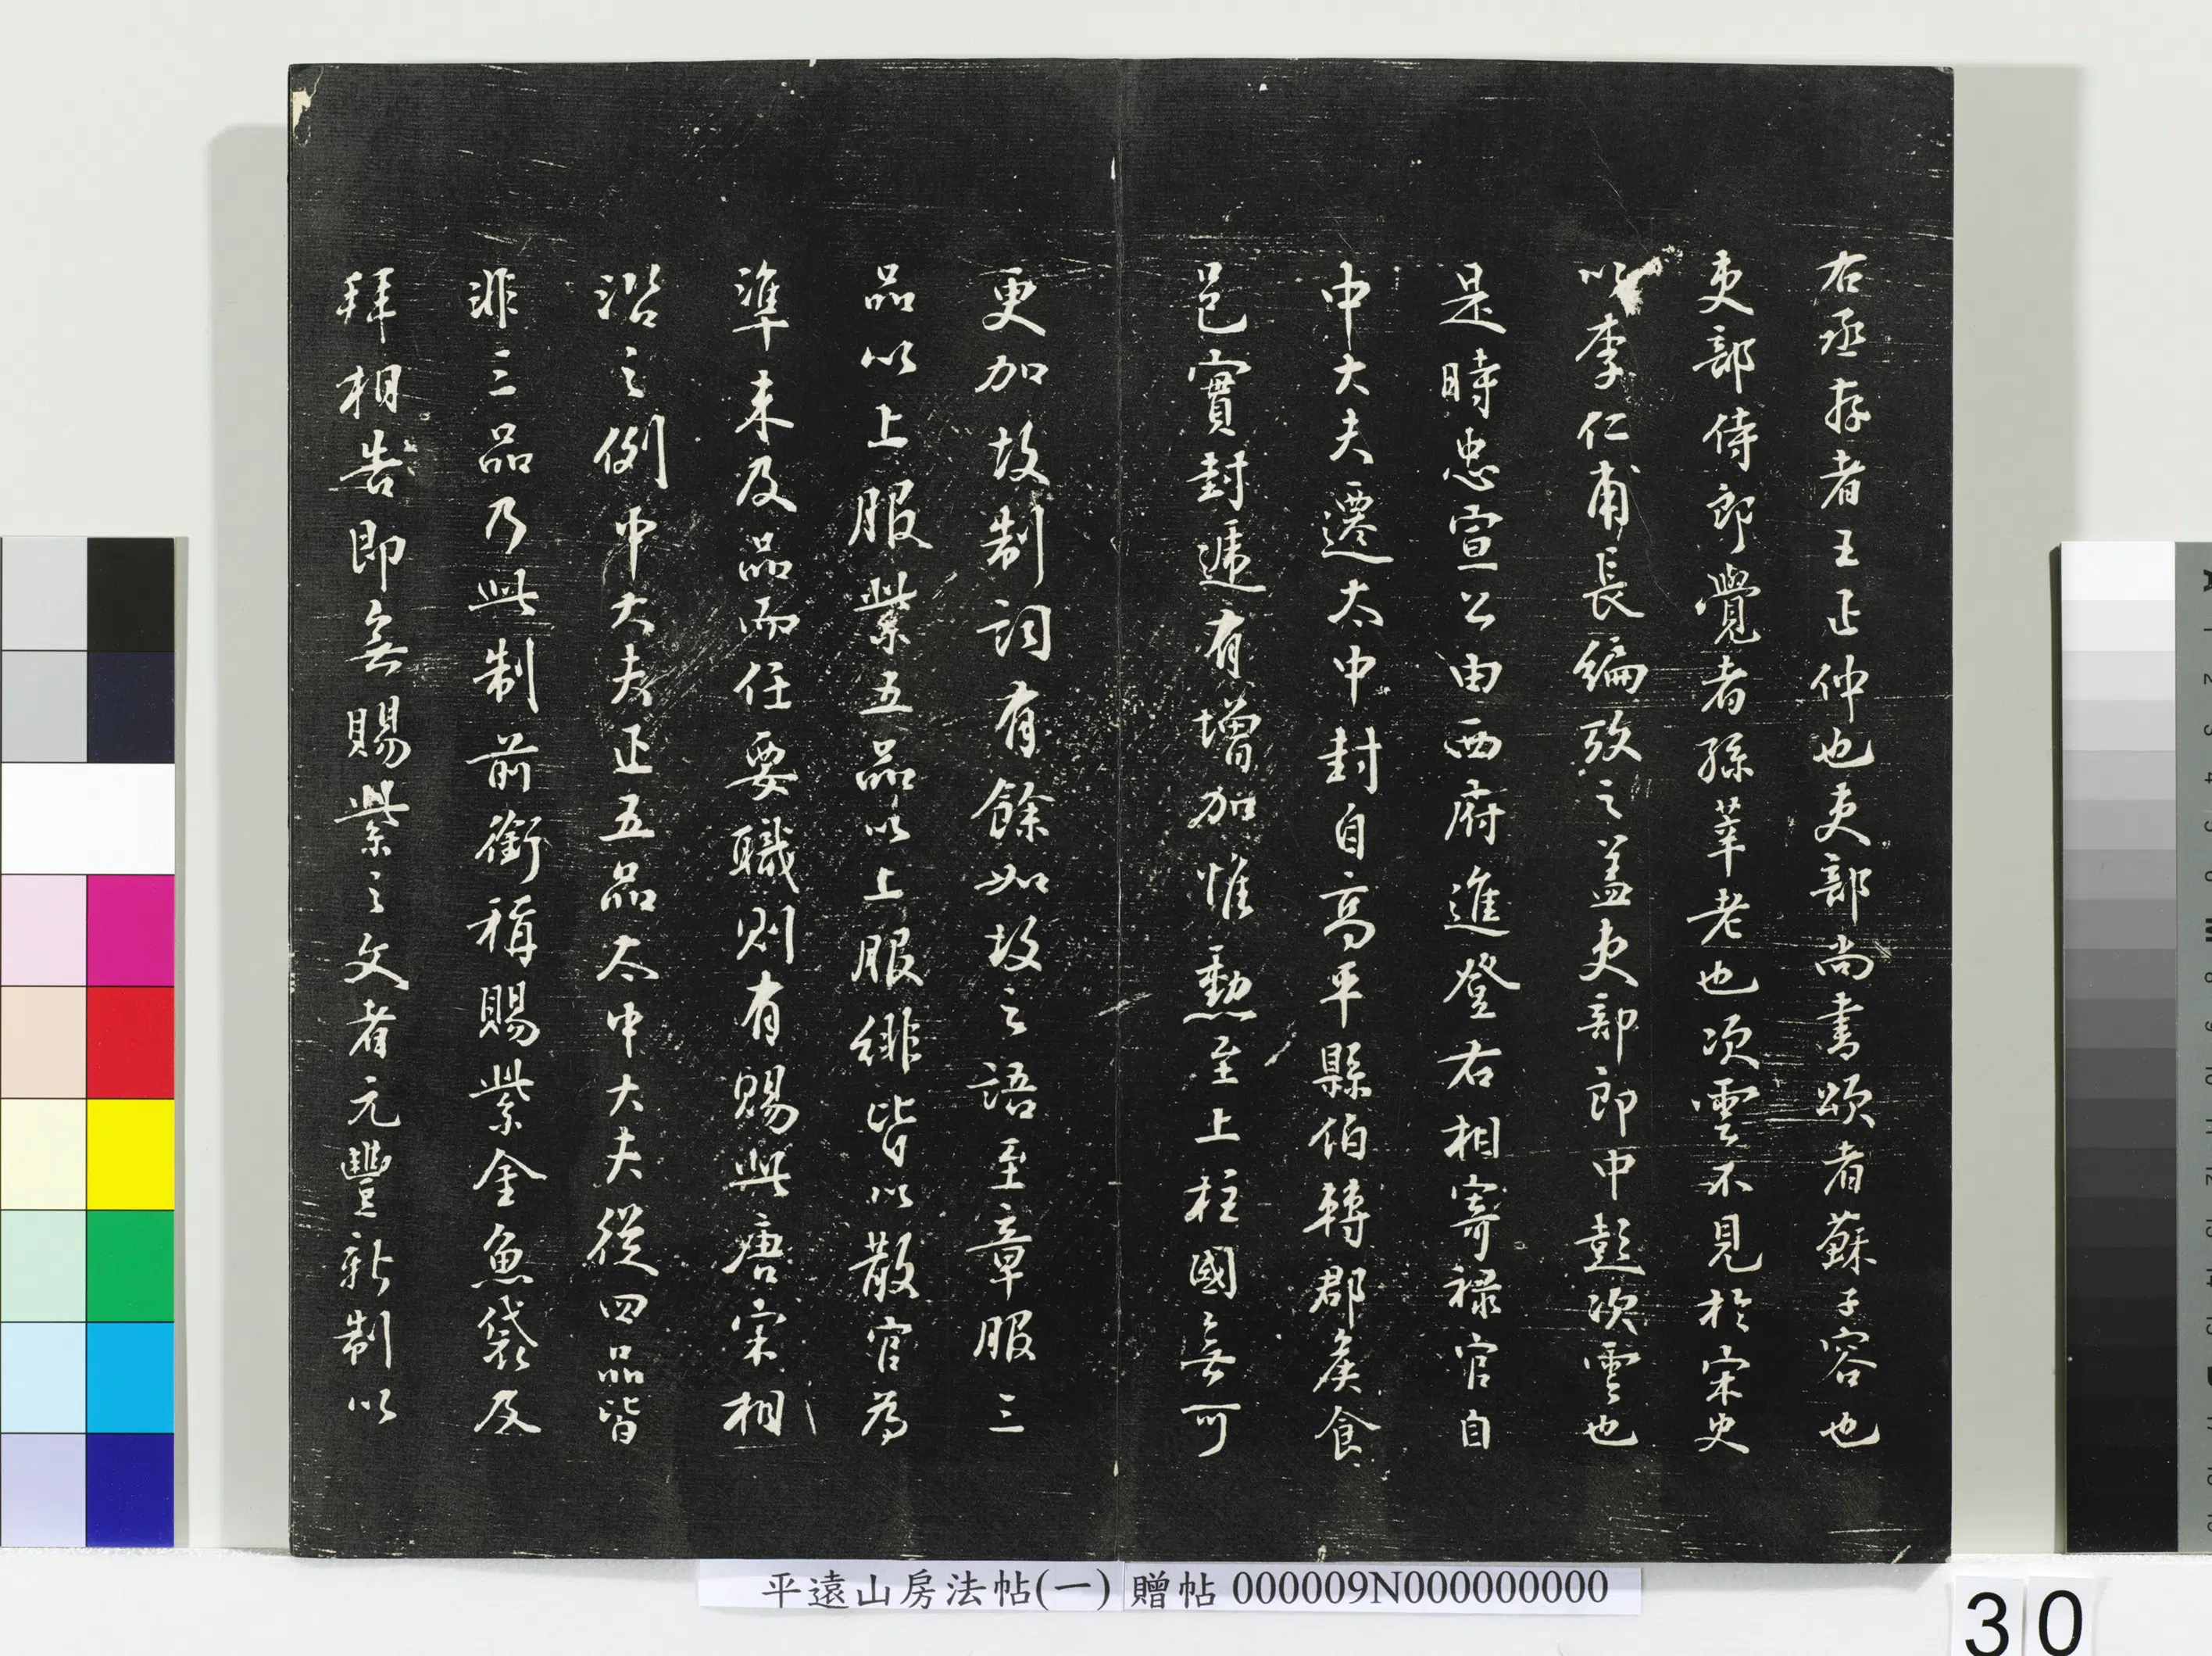 右丞存者王正仲也吏部尚書頌者蘇子容也
吏部侍郎覺者孫莘老也次雲不見於宋史
以李仁甫長編攷之蓋吏部郎中彭次雲也
是時忠宣公由西府進登右相寄祿官自
中大夫遷太中封自高平縣伯轉郡矦食
邑實封遞有增加惟勳至上柱國無可
更加故制詞有餘如故之語至章服三
品以上服紫五品以上服緋皆以散官為
準未及品而任要職則有賜與唐宋相
沿之例中大夫正五品太中大夫從四品皆
非三品乃此制前銜稱賜紫金魚袋及
拜相告即無賜紫之文者元豐新制以
平遠山房法帖(一) 贈帖 000009N000000000
30